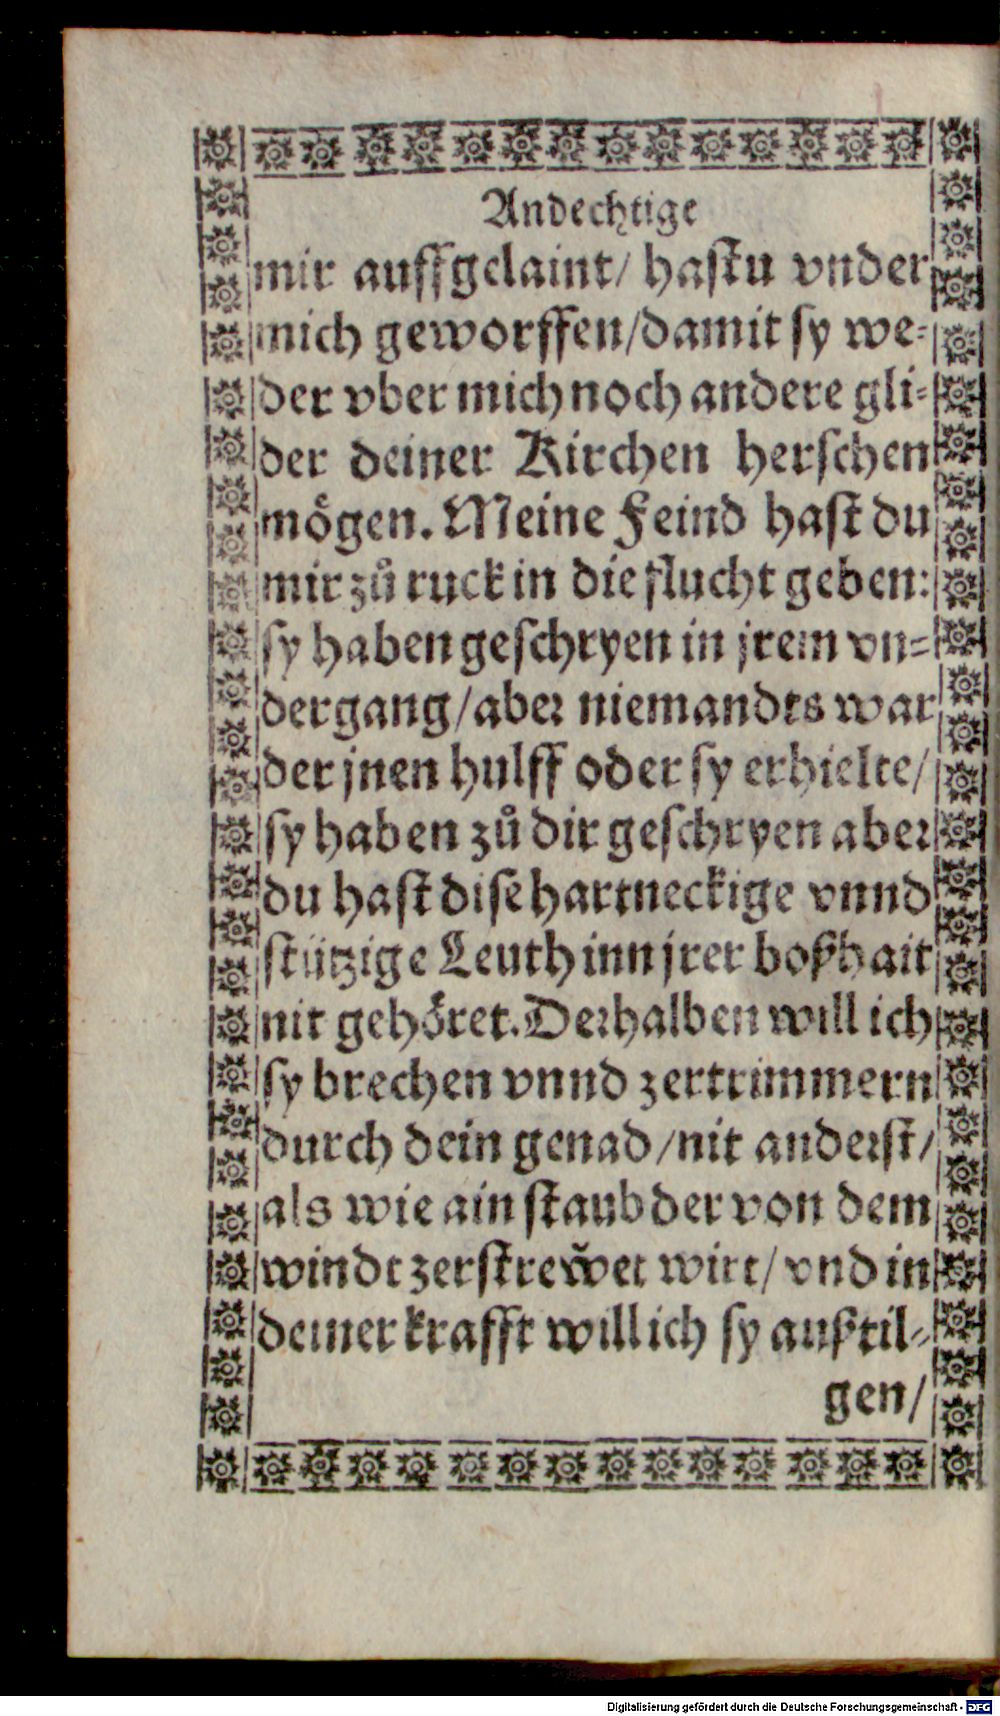 Andechtige
mir auffgelaint/ hastu vnder
mich geworffen/damit sy we=
der vber mich noch andere gli=
der deiner Kirchen herschen
mögen. Meine Feind hast du
mir zů ruck in die flucht geben:
sy haben geschryen in jrem vn=
dergang/aber niemandts war
der jnen hulff oder sy erhielte/
sy haben zů dir geschryen aber
du hast dise hartneckige vnnd
stützige Leuth inn jrer boßhait
nit gehöret. Derhalben will ich
sy brechen vnnd zertrimmern
durch dein genad/nit anderst/
als wie ain staub der von dem
windt zerstrewet wirt/ vnd in
deiner krafft will ich sy außtil=
gen/
Digitalisierung gefördert durch die Deutsche Forschungsgemeinschaft - DFG